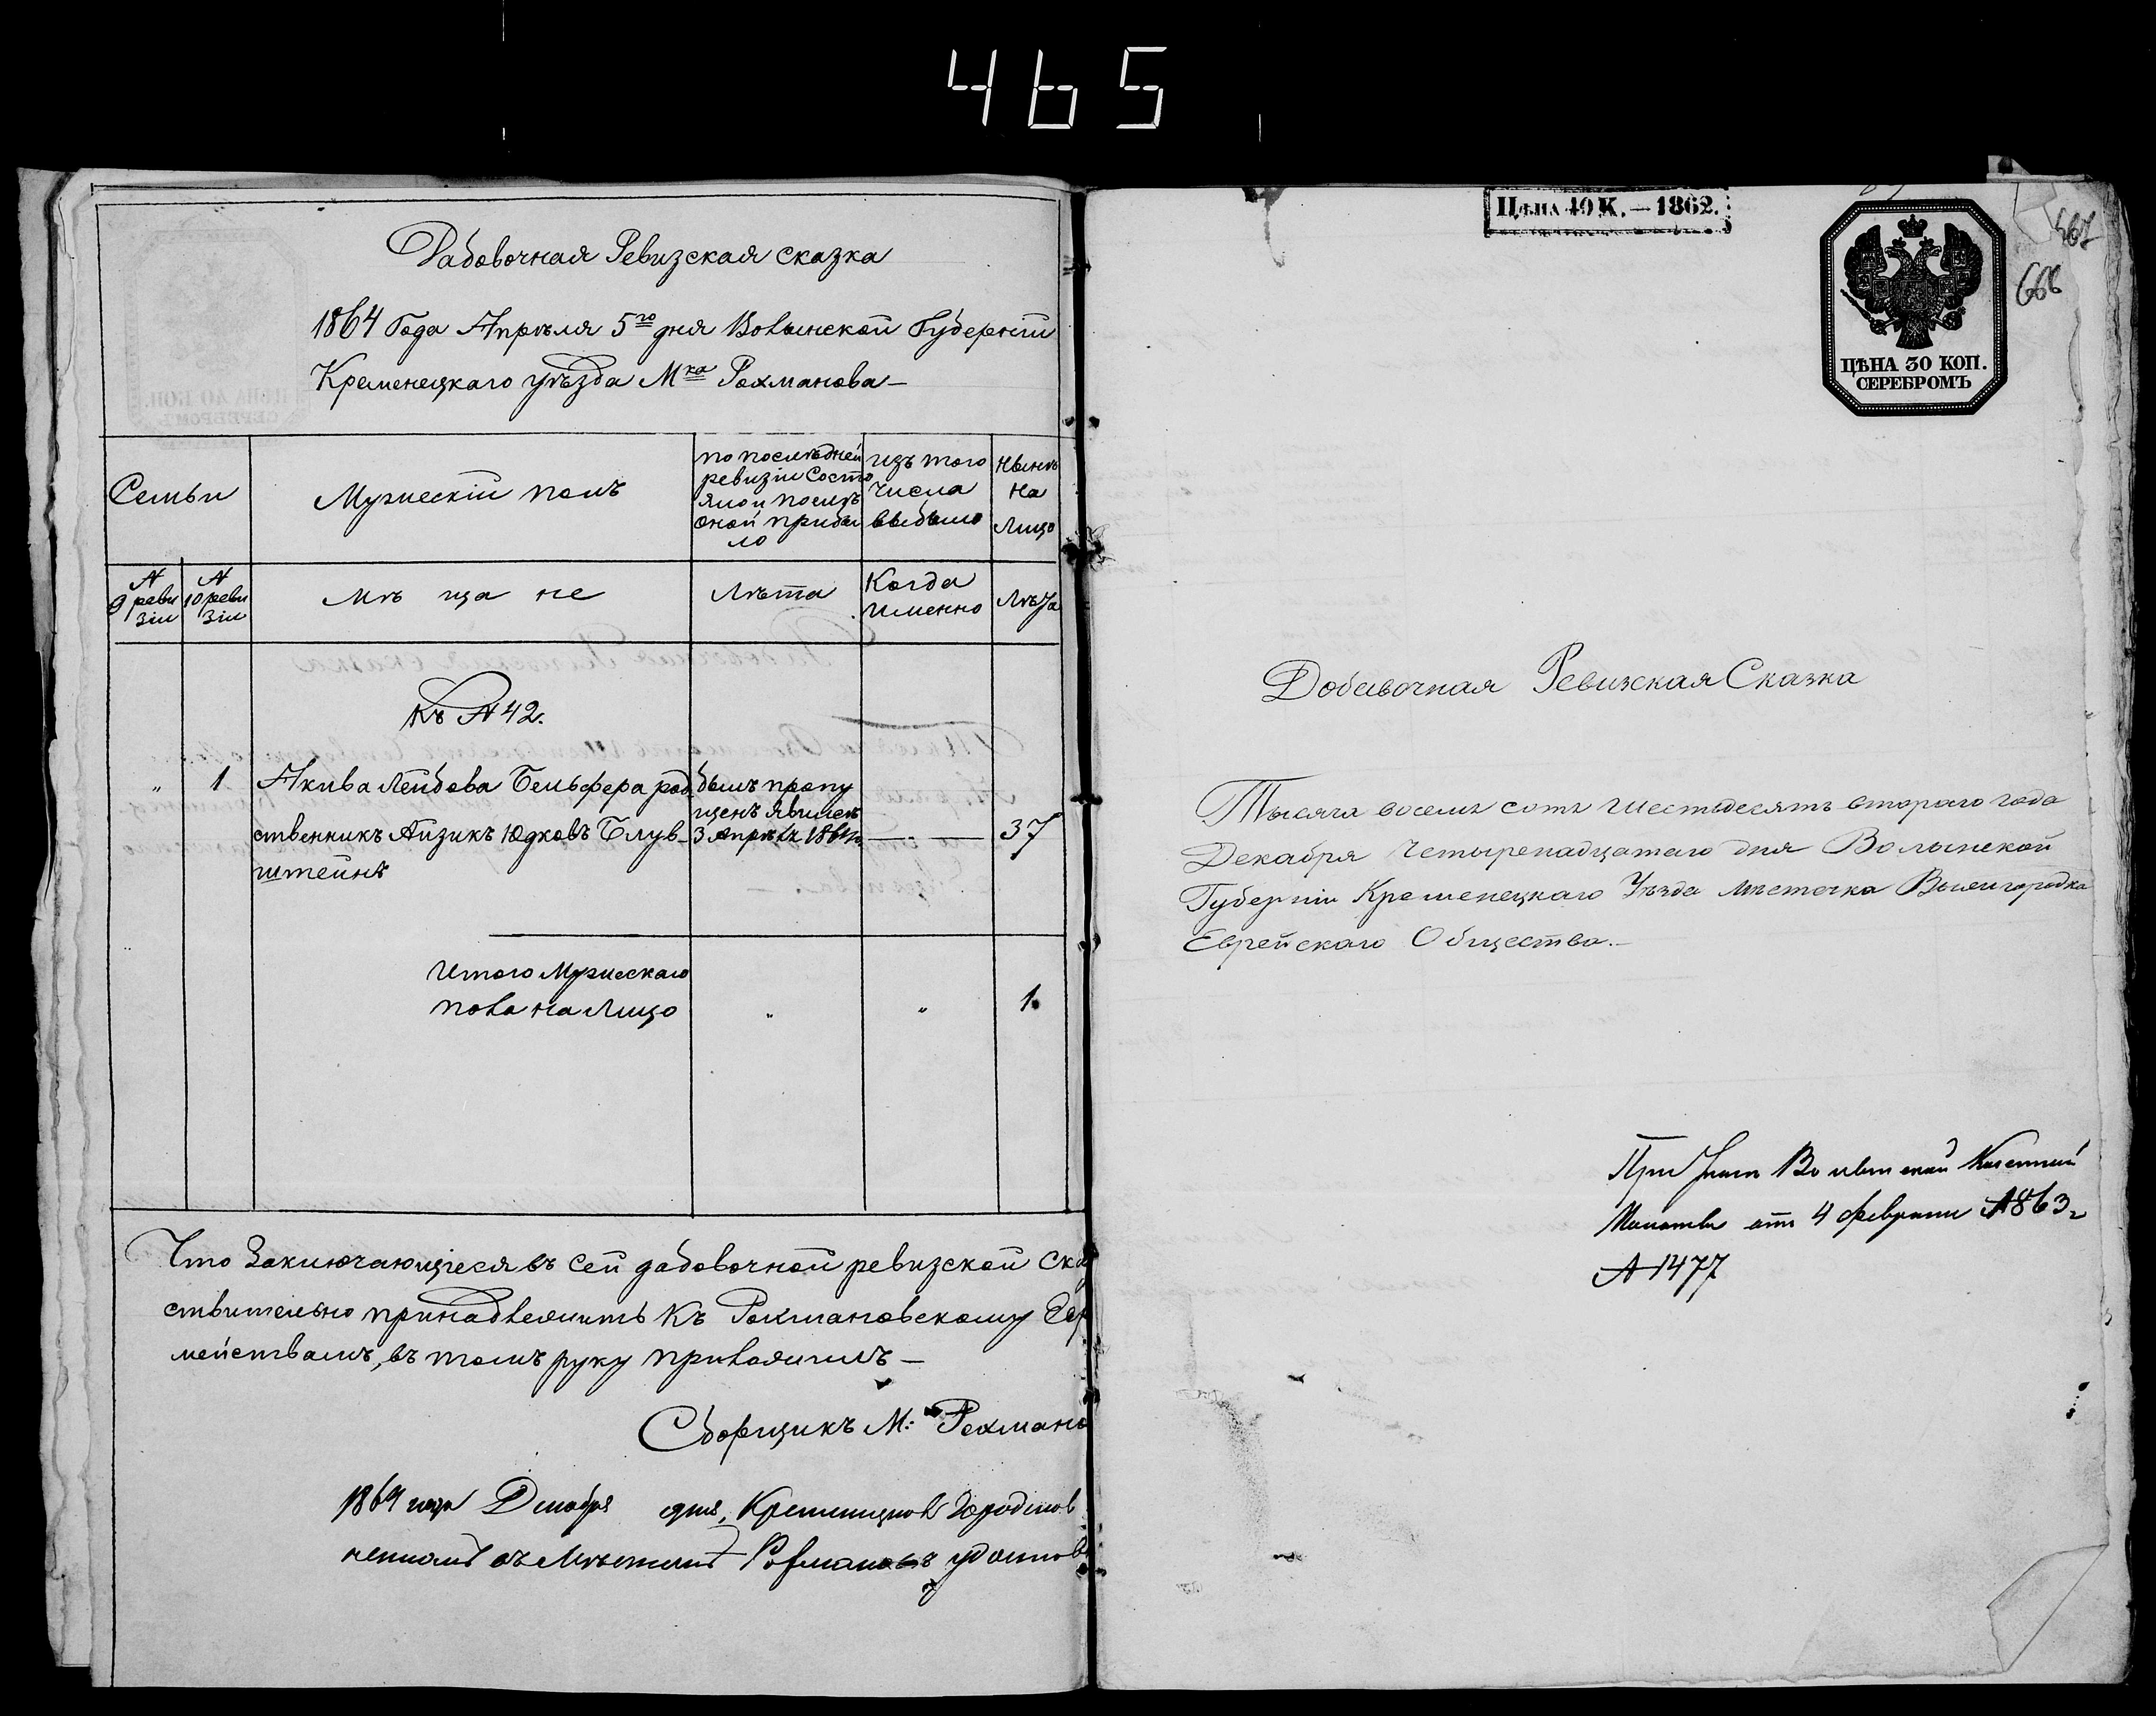 465
Дабовочная Ревизская сказка
1864 Года Апрѣля 5го дня Волынской Губерніи
Кременецкаго уѣзда Мка Рохманова—
Семьи
Мужескій полъ
по послѣдней ревизіи состояло и послѣ оной прибыло
изъ того числа выбыло
нынѣ на лицо
№ 9 ревизіи
№ 10 ревизіи
Мѣщане
Лѣта
Когда именно
Лѣта
Къ № 42.
„ 1 Акива Лейбова Бельфера род былъ пропу
щенъ явился
ственникъ Айзикъ Юдковъ Блув- 3 апрѣля 1864 — 37
штейнъ
Итого Мужескаго
пола на лицо „ „ 1.
Что Заключающіеся въ сей дабовочной ревизской ска
ствительно принадлежитъ Къ Рохмановскому Евр
мействамъ, въ томъ руку приложилъ—
Сборщикъ М: Рохмано
1864 года Декабря дня, Кременецкой Городков
въ Мѣстечкѣ Рохмановъ удостов
Цѣна 40 К.—1862.
467
666
ЦѢНА 30 КОП.
СЕРЕБРОМЪ
Добавочная Ревизская Сказка
Тысяча восемь сотъ шестьдесятъ втораго года
Декабря Четыренадцатаго дня Волынской
Губерніи Кременецкаго Уѣзда мѣстечка Вышгородка
Еврейскаго Общества.—
При Волынской Казенной
Палаты отъ 4 февраля 1863 г
№ 1477